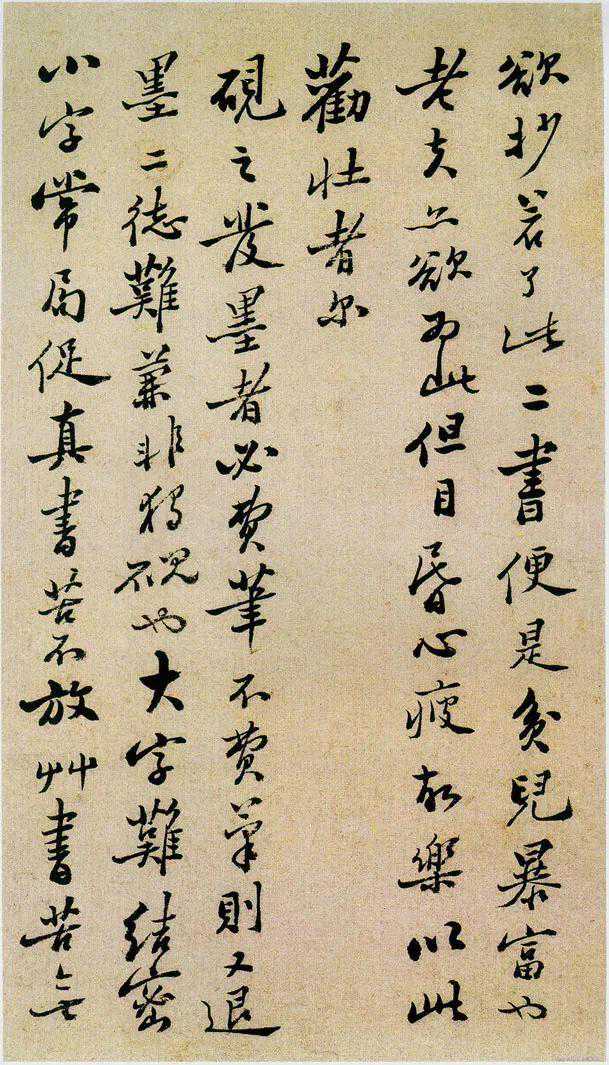 欲抄若了此二書便是貧兒暴富也
老夫亦欲为此但目昏心疲故樂以此
勸壯者尔
硯之發墨者必費筆不費筆則又退
墨二德難兼非獨硯也大字難結密
小字常局促真書苦不放艸書苦无